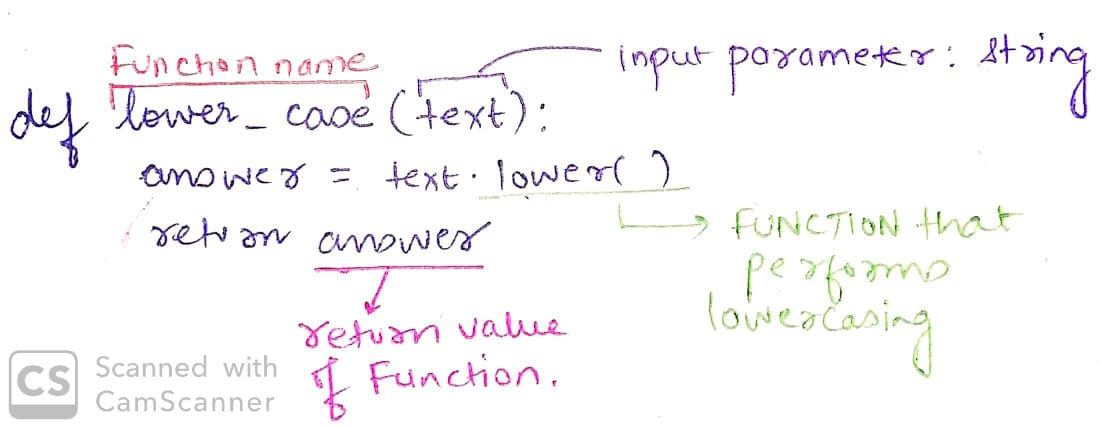 Function name
input parameter: string
def lower_case (text):
answer = text.lower( )
return answer
FUNCTION that
performs
lowercasing
return value
of Function.
CS Scanned with
CamScanner